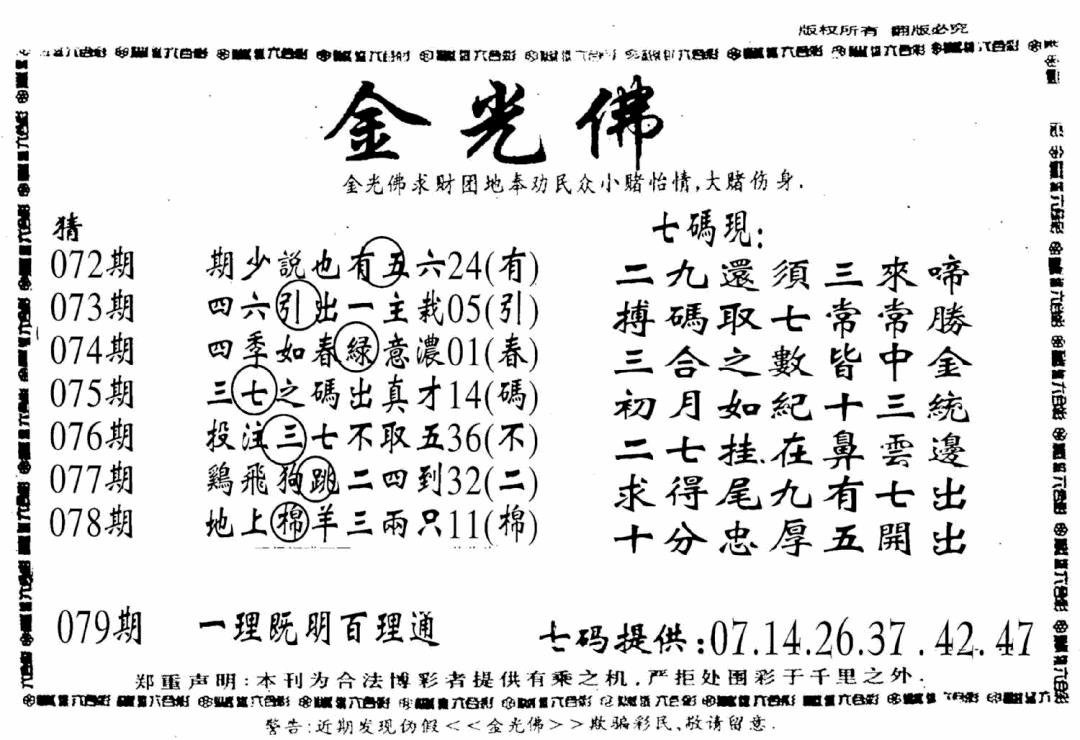 版权所有 翻版必究
金光佛
金光佛求财团地奉劝民众小赌怡情,大赌伤身.
猜
072期 期少説也有五六24(有)
073期 四六引出一主栽05(引)
074期 四季如春綠意濃01(春)
075期 三七之碼出真才14(碼)
076期 投注三七不取五36(不)
077期 鷄飛狗跳二四到32(二)
078期 地上棉羊三兩只11(棉)
七碼現:
二九還須三來啼
搏碼取七常常勝
三合之數皆中金
初月如紀十三統
二七挂在鼻雲邊
求得尾九有七出
十分忠厚五開出
079期 一理既明百理通 七码提供:07.14.26.37.42.47
郑重声明:本刊为合法博彩者提供有乘之机,严拒处围彩于千里之外.
警告:近期发现伪假<<金光佛>>欺骗彩民,敬请留意.